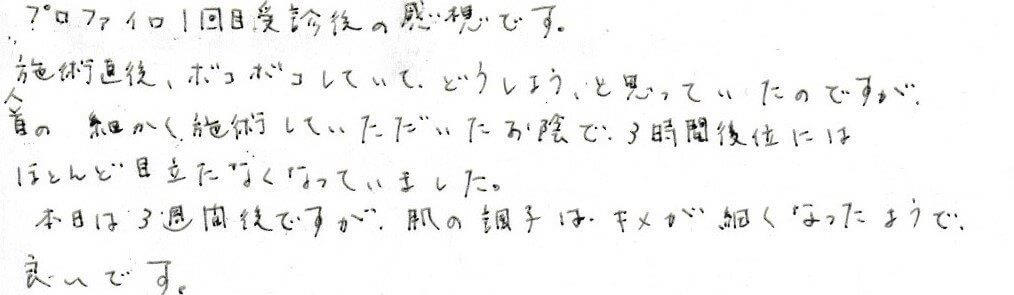 プロファイロ1回目受診後の感想です。
施術直後、ボコボコしていて、どうしよう、と思っていたのですが、
首の 細かく施術していただいたお陰で、3時間後位には
ほとんど目立たなくなっていました。
本日は3週間後ですが、肌の調子は、キメが細くなったようで、
良いです。